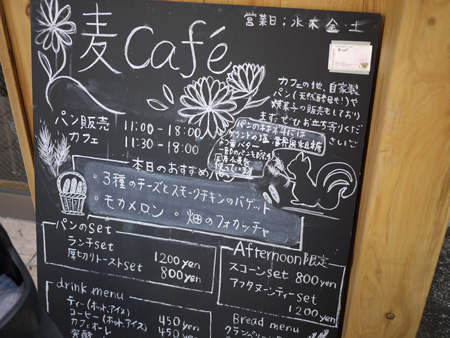 麦 Café
営業日；水 木 金・土
カフェの他、自家製
パン（天然酵母もり）や
焼菓子の販売もしており
ます。ぜひお立ち寄りくだ
さいご
パン販売 11:00-18:00
カフェ 11:30-18:00
パンの材料には
ゲランドの塩
本日のおすすめパン
・3種のチーズとスモークチキンのバゲット
・モカメロン 。畑のフォカッチャ
パンのset
ランチset 1200yen
厚切りトーストset 800yen
Afternoon限定
スコーンset 800yen
アフタヌーンティーset
1200yen
drink menu
ティー（ホット、アイス） 450yen
コーヒー（ホット、アイス） 450yen
カフェ・オーレ
Bread menu